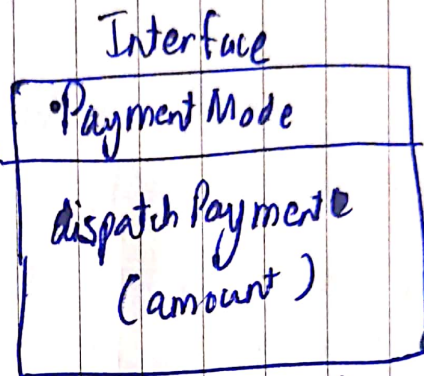 Interface
•Payment Mode
dispatch Payment
(amount)